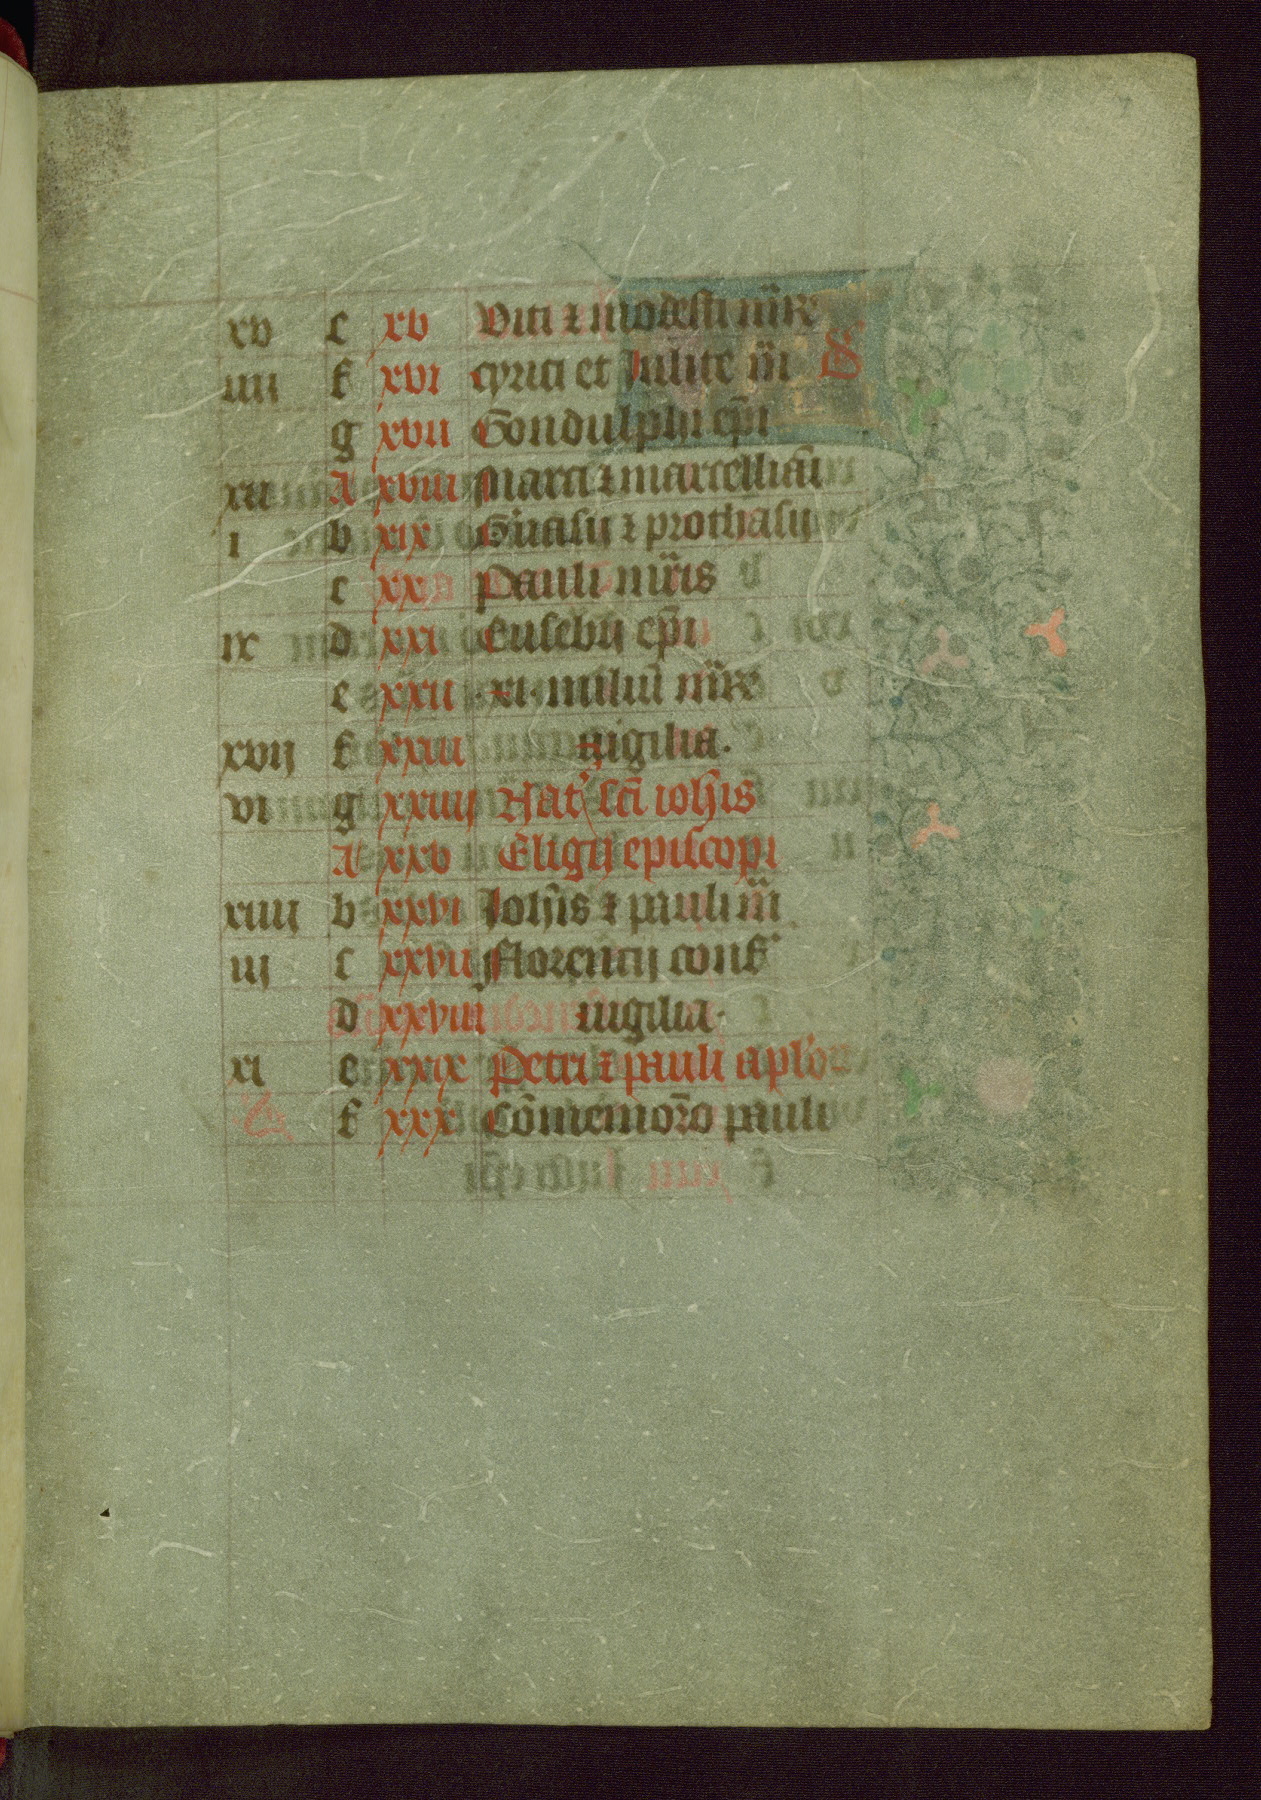 xv e xv Viti ⁊ modesti mr̃ꝝ
iiii f xvi cyrici et Julite m̃
g xvii Gondulphi ep̃i
xii A xviii Marci ⁊ marcelliãi
i b xix G'uasij ⁊ prothasij
c xx Pauli mr̃is
ix d xxi Eusebij ep̃i
e xxii .xi. miliũ mr̃ꝝ
xvij f xxiii uigilia.
vi g xxiiij Nat' sc̃i ioh̃is
A xxv Eligij episcopi
xiiij b xxvi Joh̃is ⁊ pauli m̃
iij c xxvii Florẽncij conf̃
d xxviii uigilia.
xi e xxix Petri ⁊ pauli apl'o
f xxx Cõmemor̃o pauli